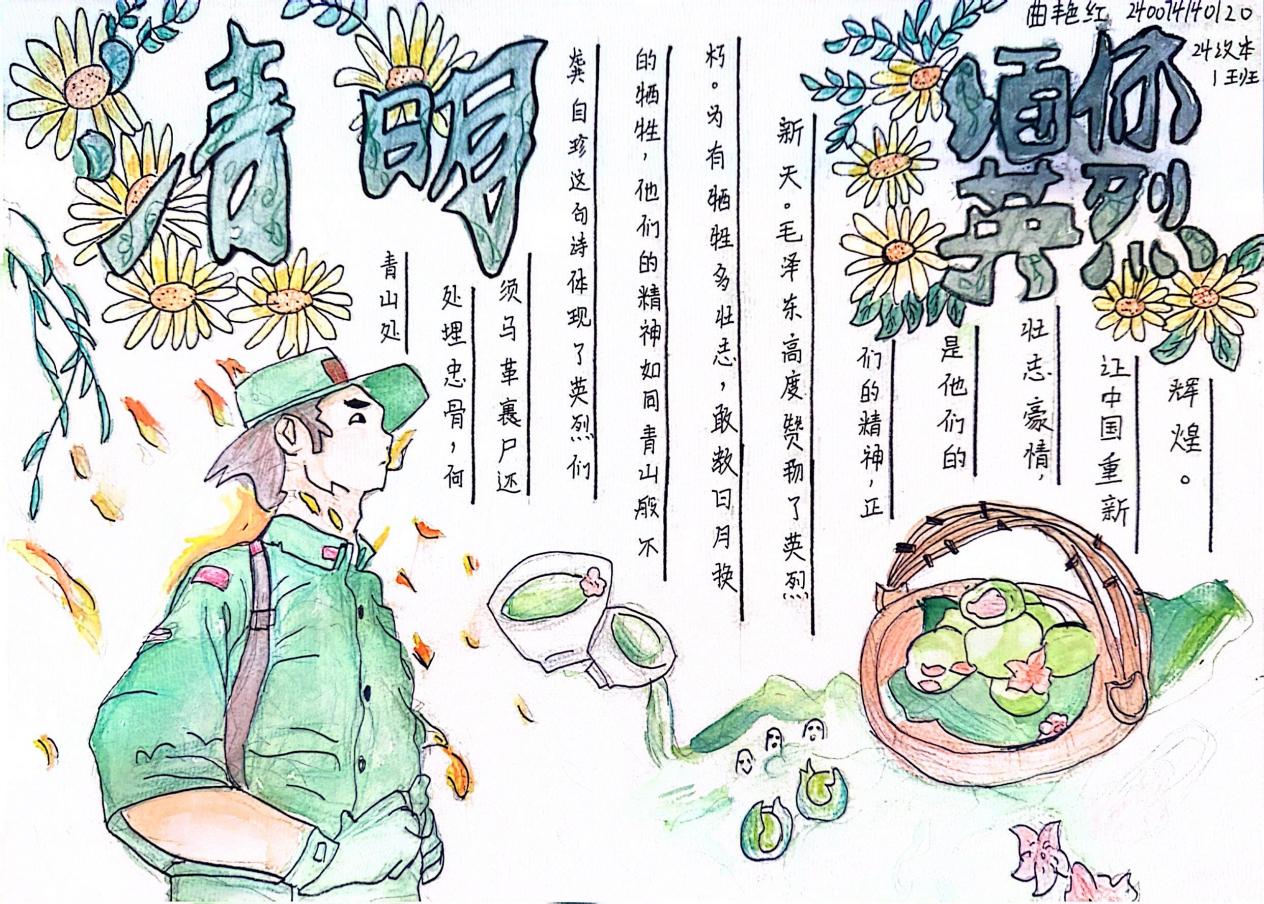 清明
缅怀
英烈
曲艳红
24级本
1班
青山处
处埋忠骨，何
须马革裹尸还
龚自珍这句诗体现了英烈们
的牺牲，他们的精神如同青山般不
朽。为有牺牲多壮志，敢教日月换
新天。毛泽东高度赞扬了英烈
们的精神，正
是他们的
壮志豪情，
让中国重新
辉煌。